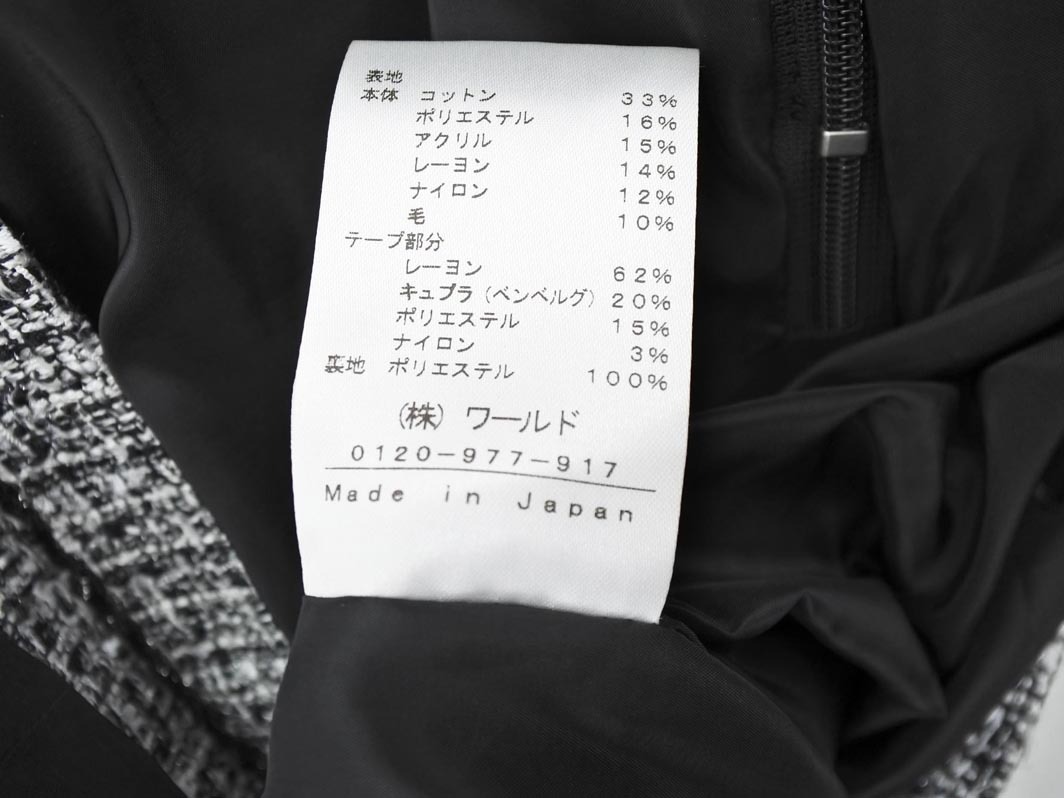 表地
本体 コットン 33%
ポリエステル 16%
アクリル 15%
レーヨン 14%
ナイロン 12%
毛 10%
テープ部分
レーヨン 62%
キュプラ(ベンベルグ) 20%
ポリエステル 15%
ナイロン 3%
裏地 ポリエステル 100%
(株)ワールド
0120-977-917
Made in Japan